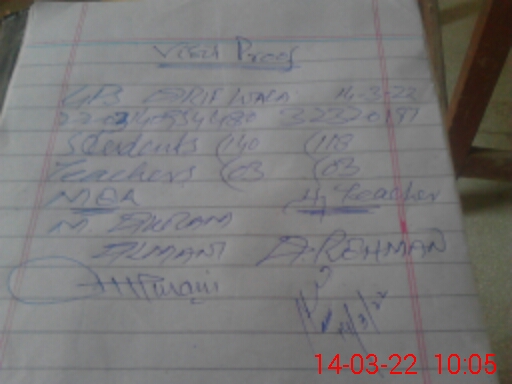 Visit Proof
GPS ARIF WALA 14-3-22
Students (140 (118
Teachers (03 (03
MEA H, Teacher
M. AKRAM
ALMANI A. REHMAN
14/3/22
14-03-22 10:05